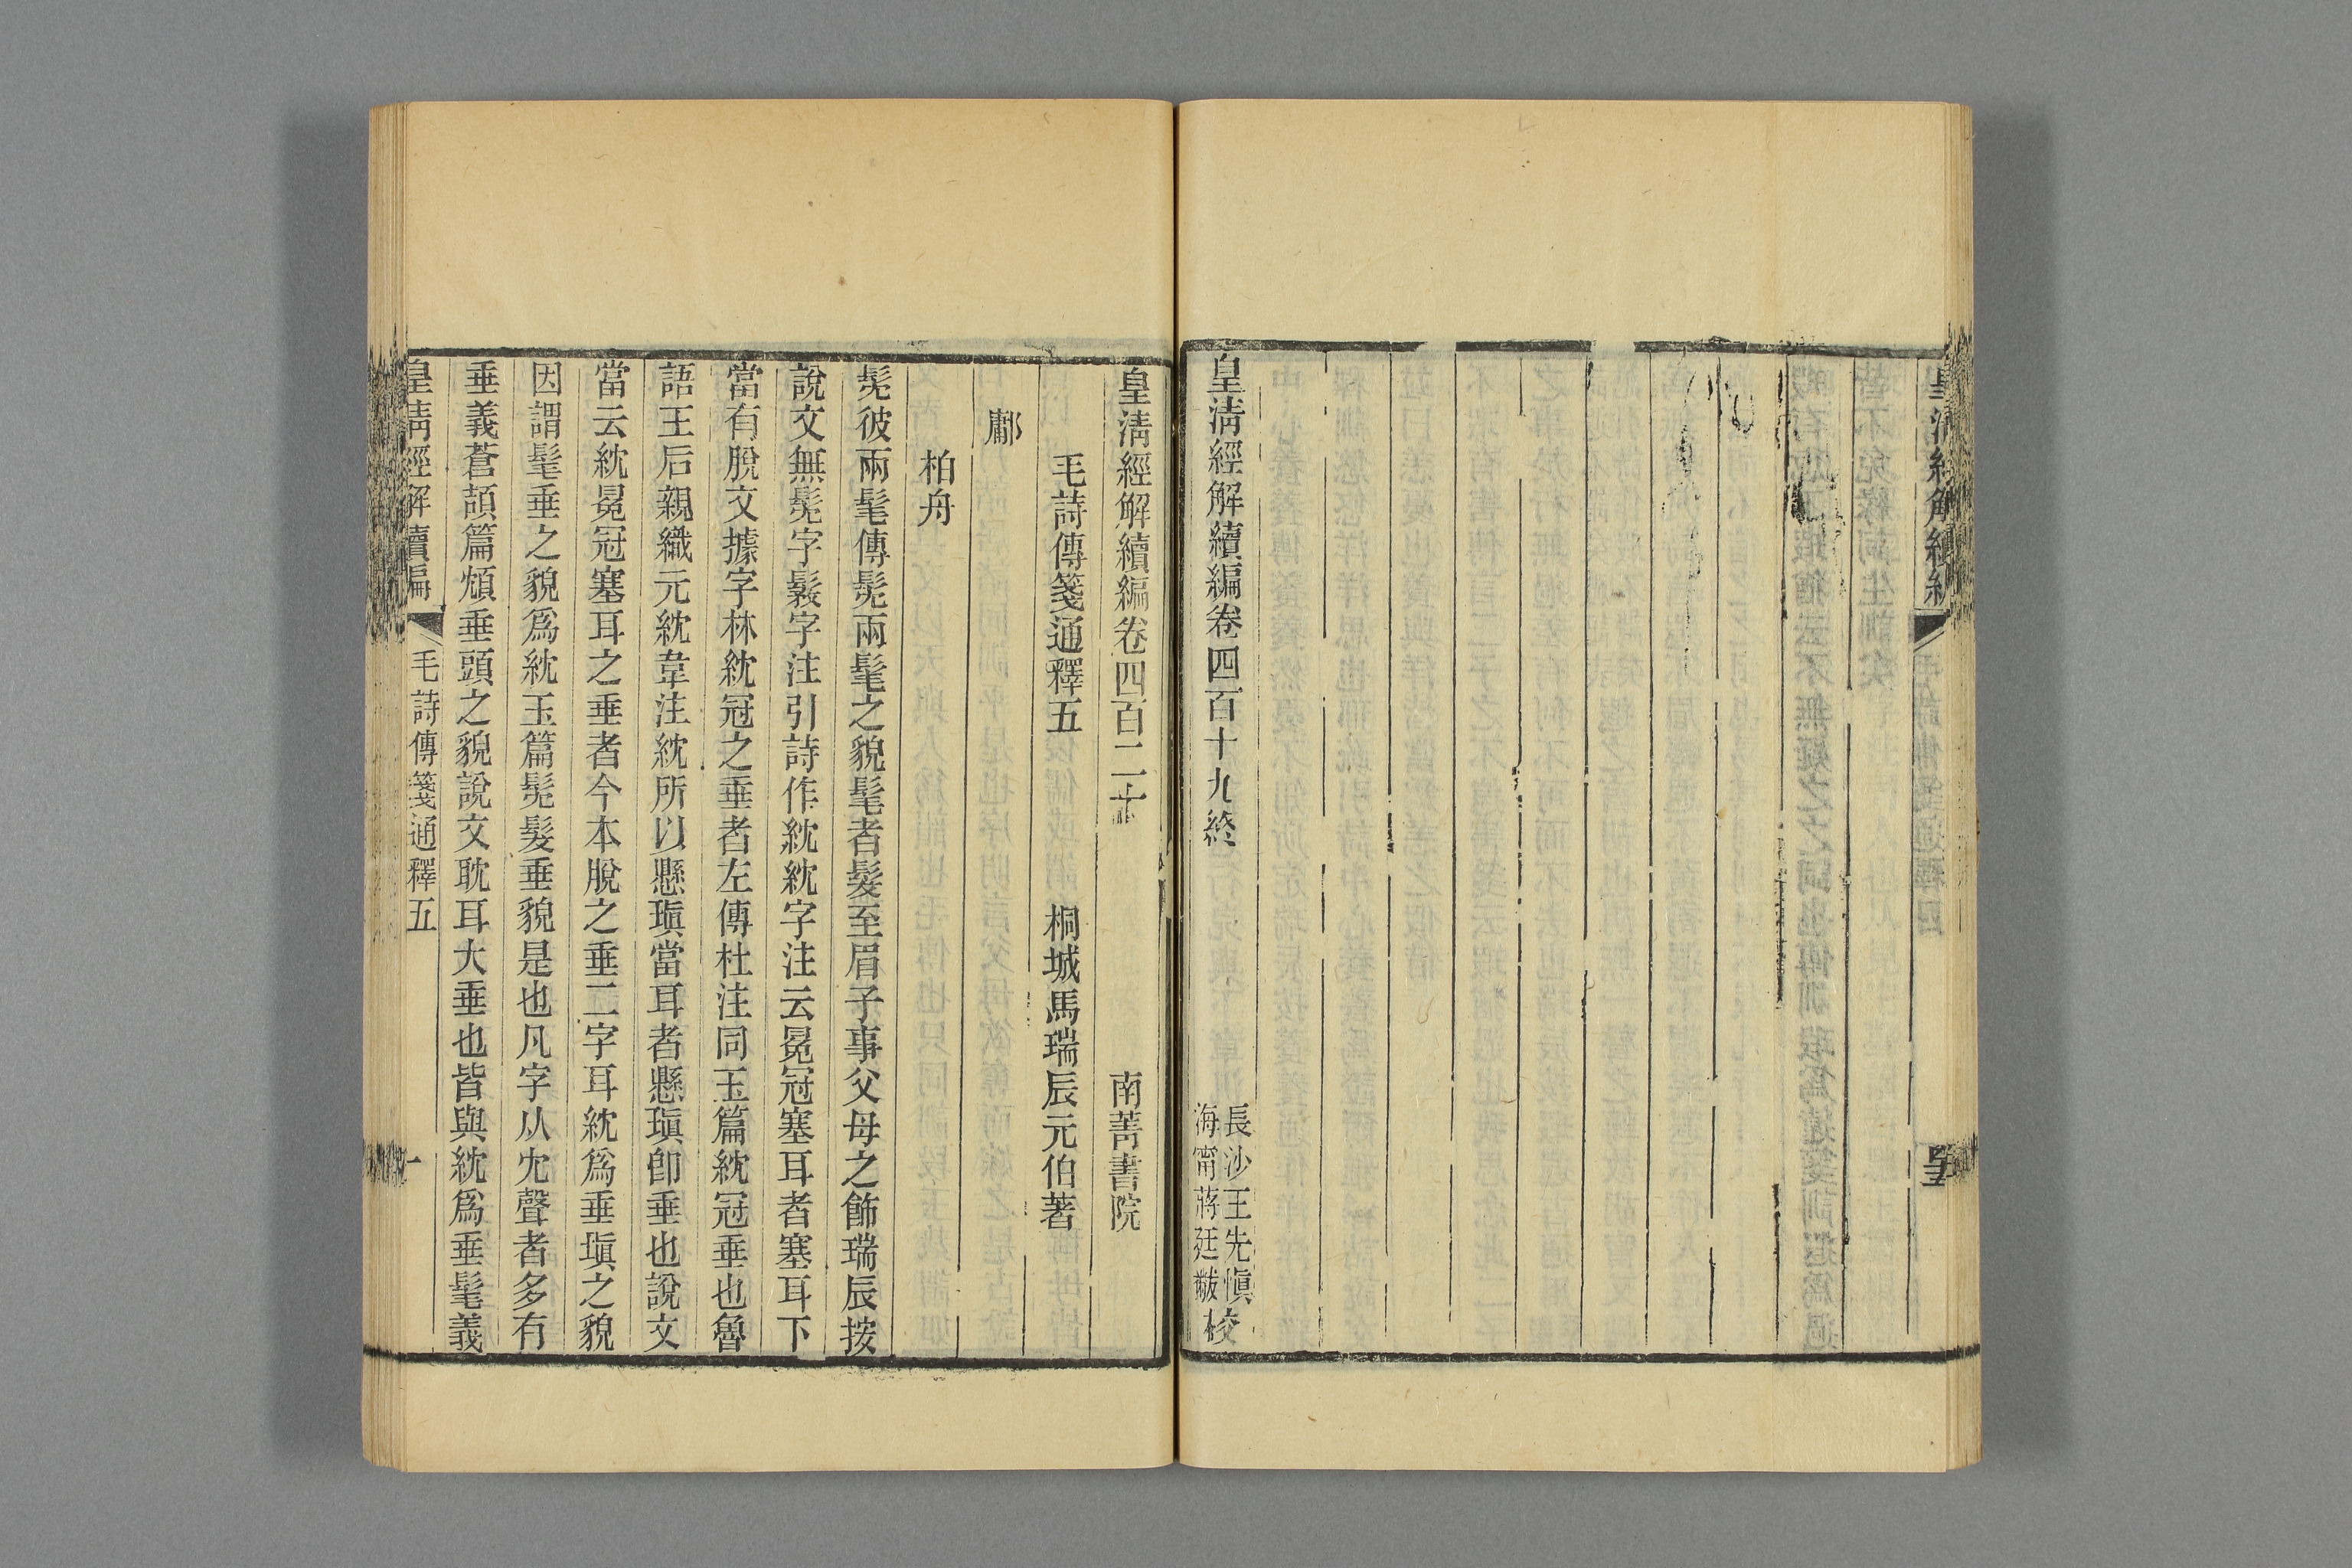 皇清經解續編
皇清經解續編卷四百十九終
長沙王先愼
海甯蔣廷黻
校
皇清經解續編卷四百二十
南菁書院
毛詩傳箋通釋五
桐城馬瑞辰元伯著
鄘
柏舟
髧彼兩髦傳髧兩髦之貌髦者髮至眉子事父母之飾瑞辰按
說文無髧字髳字注引詩作紞紞字注云冕冠塞耳者塞耳下
當有脫文據字林紞冠之垂者左傳杜注同玉篇紞冠垂也魯
語王后親織元紞韋注紞所以懸瑱當耳者懸瑱卽垂也說文
當云紞冕冠塞耳之垂者今本脫之垂二字耳紞爲垂塡之貌
因謂髦垂之貌爲紞玉篇髧髮垂貌是也凡字从冘聲者多有
垂義蒼頡篇頫垂頭之貌說文耽耳大垂也皆與紞爲垂髦義
皇清經解續編
毛詩傳箋通釋五
一